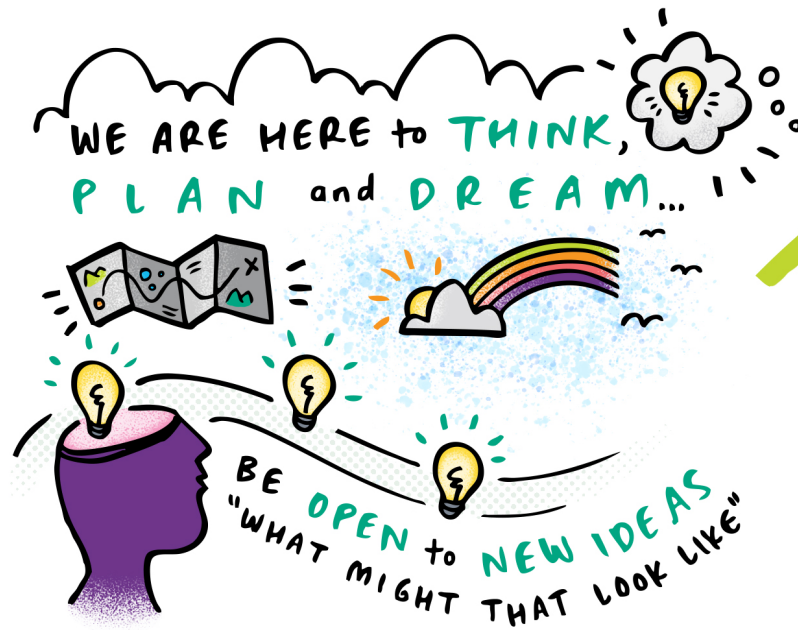 WE ARE HERE to THINK,
PLAN and DREAM...
BE OPEN to NEW IDEAS
"WHAT MIGHT THAT LOOK LIKE"